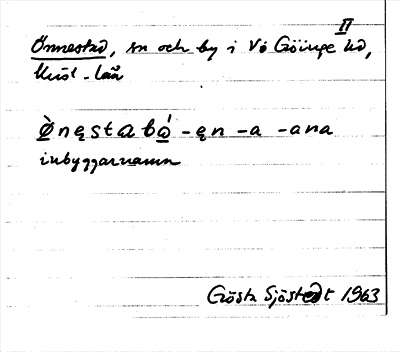 II
Önnestad, sn och by i Vö Göinge hd,
Krist. län
Ò̱nęstabó̱ -ęn -a -ana
inbyggarnamn
Gösta Sjöstedt 1963